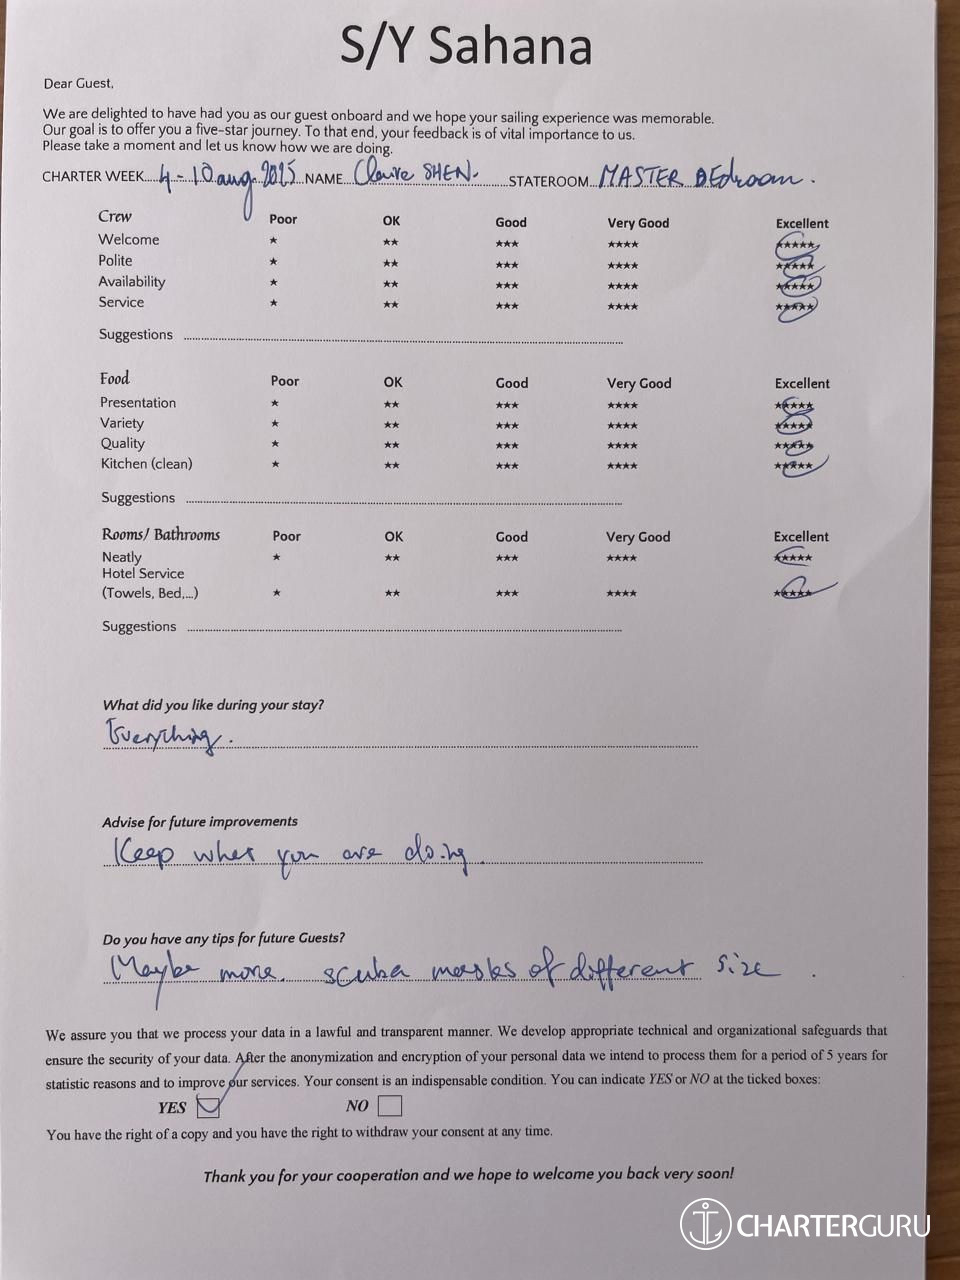 S/Y Sahana
Dear Guest,
We are delighted to have had you as our guest onboard and we hope your sailing experience was memorable.
Our goal is to offer you a five-star journey. To that end, your feedback is of vital importance to us.
Please take a moment and let us know how we are doing.
CHARTER WEEK....4-10 aug. 2025 NAME...Claire SHEN. STATEROOM...MASTER BEdroom.
Crew Poor OK Good Very Good Excellent
Welcome ★ ★★ ★★★ ★★★★ ★★★★★
Polite ★ ★★ ★★★ ★★★★ ★★★★★
Availability ★ ★★ ★★★ ★★★★ ★★★★★
Service ★ ★★ ★★★ ★★★★ ★★★★★
Suggestions
Food Poor OK Good Very Good Excellent
Presentation ★ ★★ ★★★ ★★★★ ★★★★★
Variety ★ ★★ ★★★ ★★★★ ★★★★★
Quality ★ ★★ ★★★ ★★★★ ★★★★★
Kitchen (clean) ★ ★★ ★★★ ★★★★ ★★★★★
Suggestions
Rooms/ Bathrooms Poor OK Good Very Good Excellent
Neatly ★ ★★ ★★★ ★★★★ ★★★★★
Hotel Service
(Towels, Bed,...) ★ ★★ ★★★ ★★★★ ★★★★★
Suggestions
What did you like during your stay?
Everything.
Advise for future improvements
Keep what you are doing.
Do you have any tips for future Guests?
Maybe more. scuba masks of different size.
We assure you that we process your data in a lawful and transparent manner. We develop appropriate technical and organizational safeguards that
ensure the security of your data. After the anonymization and encryption of your personal data we intend to process them for a period of 5 years for
statistic reasons and to improve our services. Your consent is an indispensable condition. You can indicate YES or NO at the ticked boxes:
YES NO
You have the right of a copy and you have the right to withdraw your consent at any time.
Thank you for your cooperation and we hope to welcome you back very soon!
CHARTERGURU